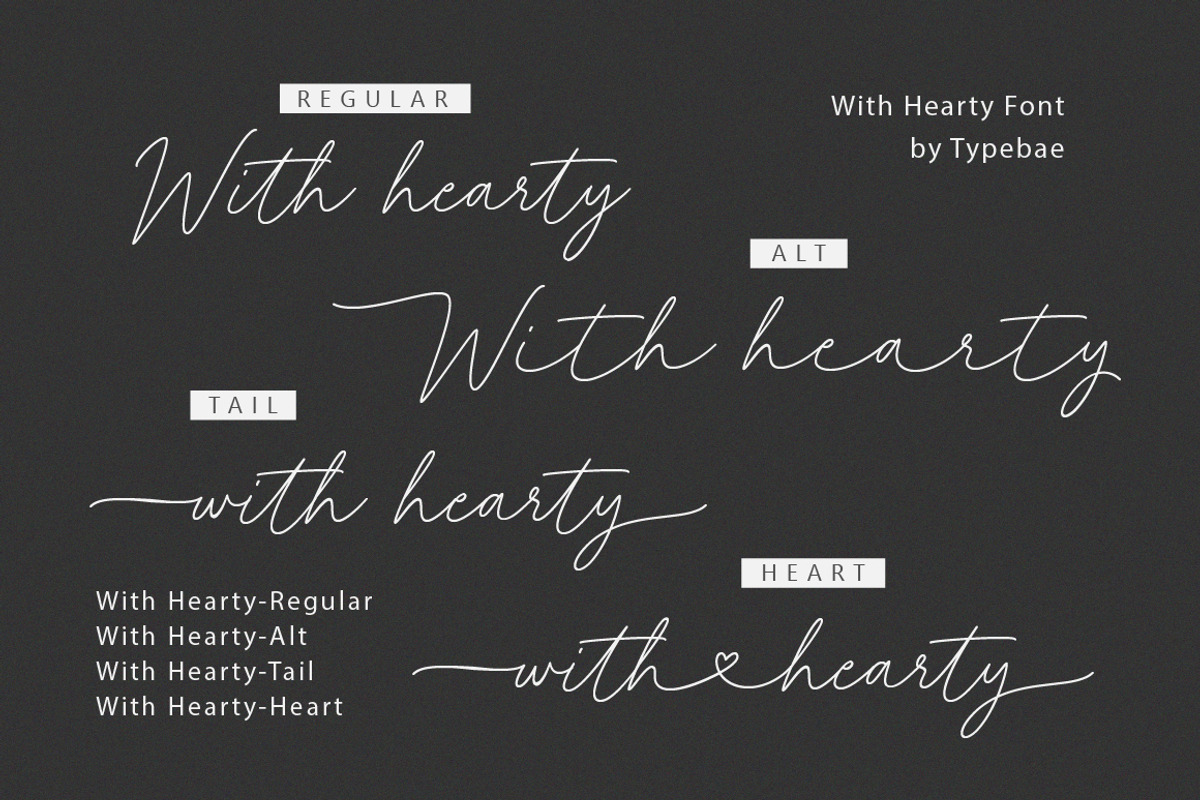 REGULAR
With hearty
With Hearty Font
by Typebae
ALT
With hearty
TAIL
with hearty
HEART
with hearty
With Hearty-Regular
With Hearty-Alt
With Hearty-Tail
With Hearty-Heart